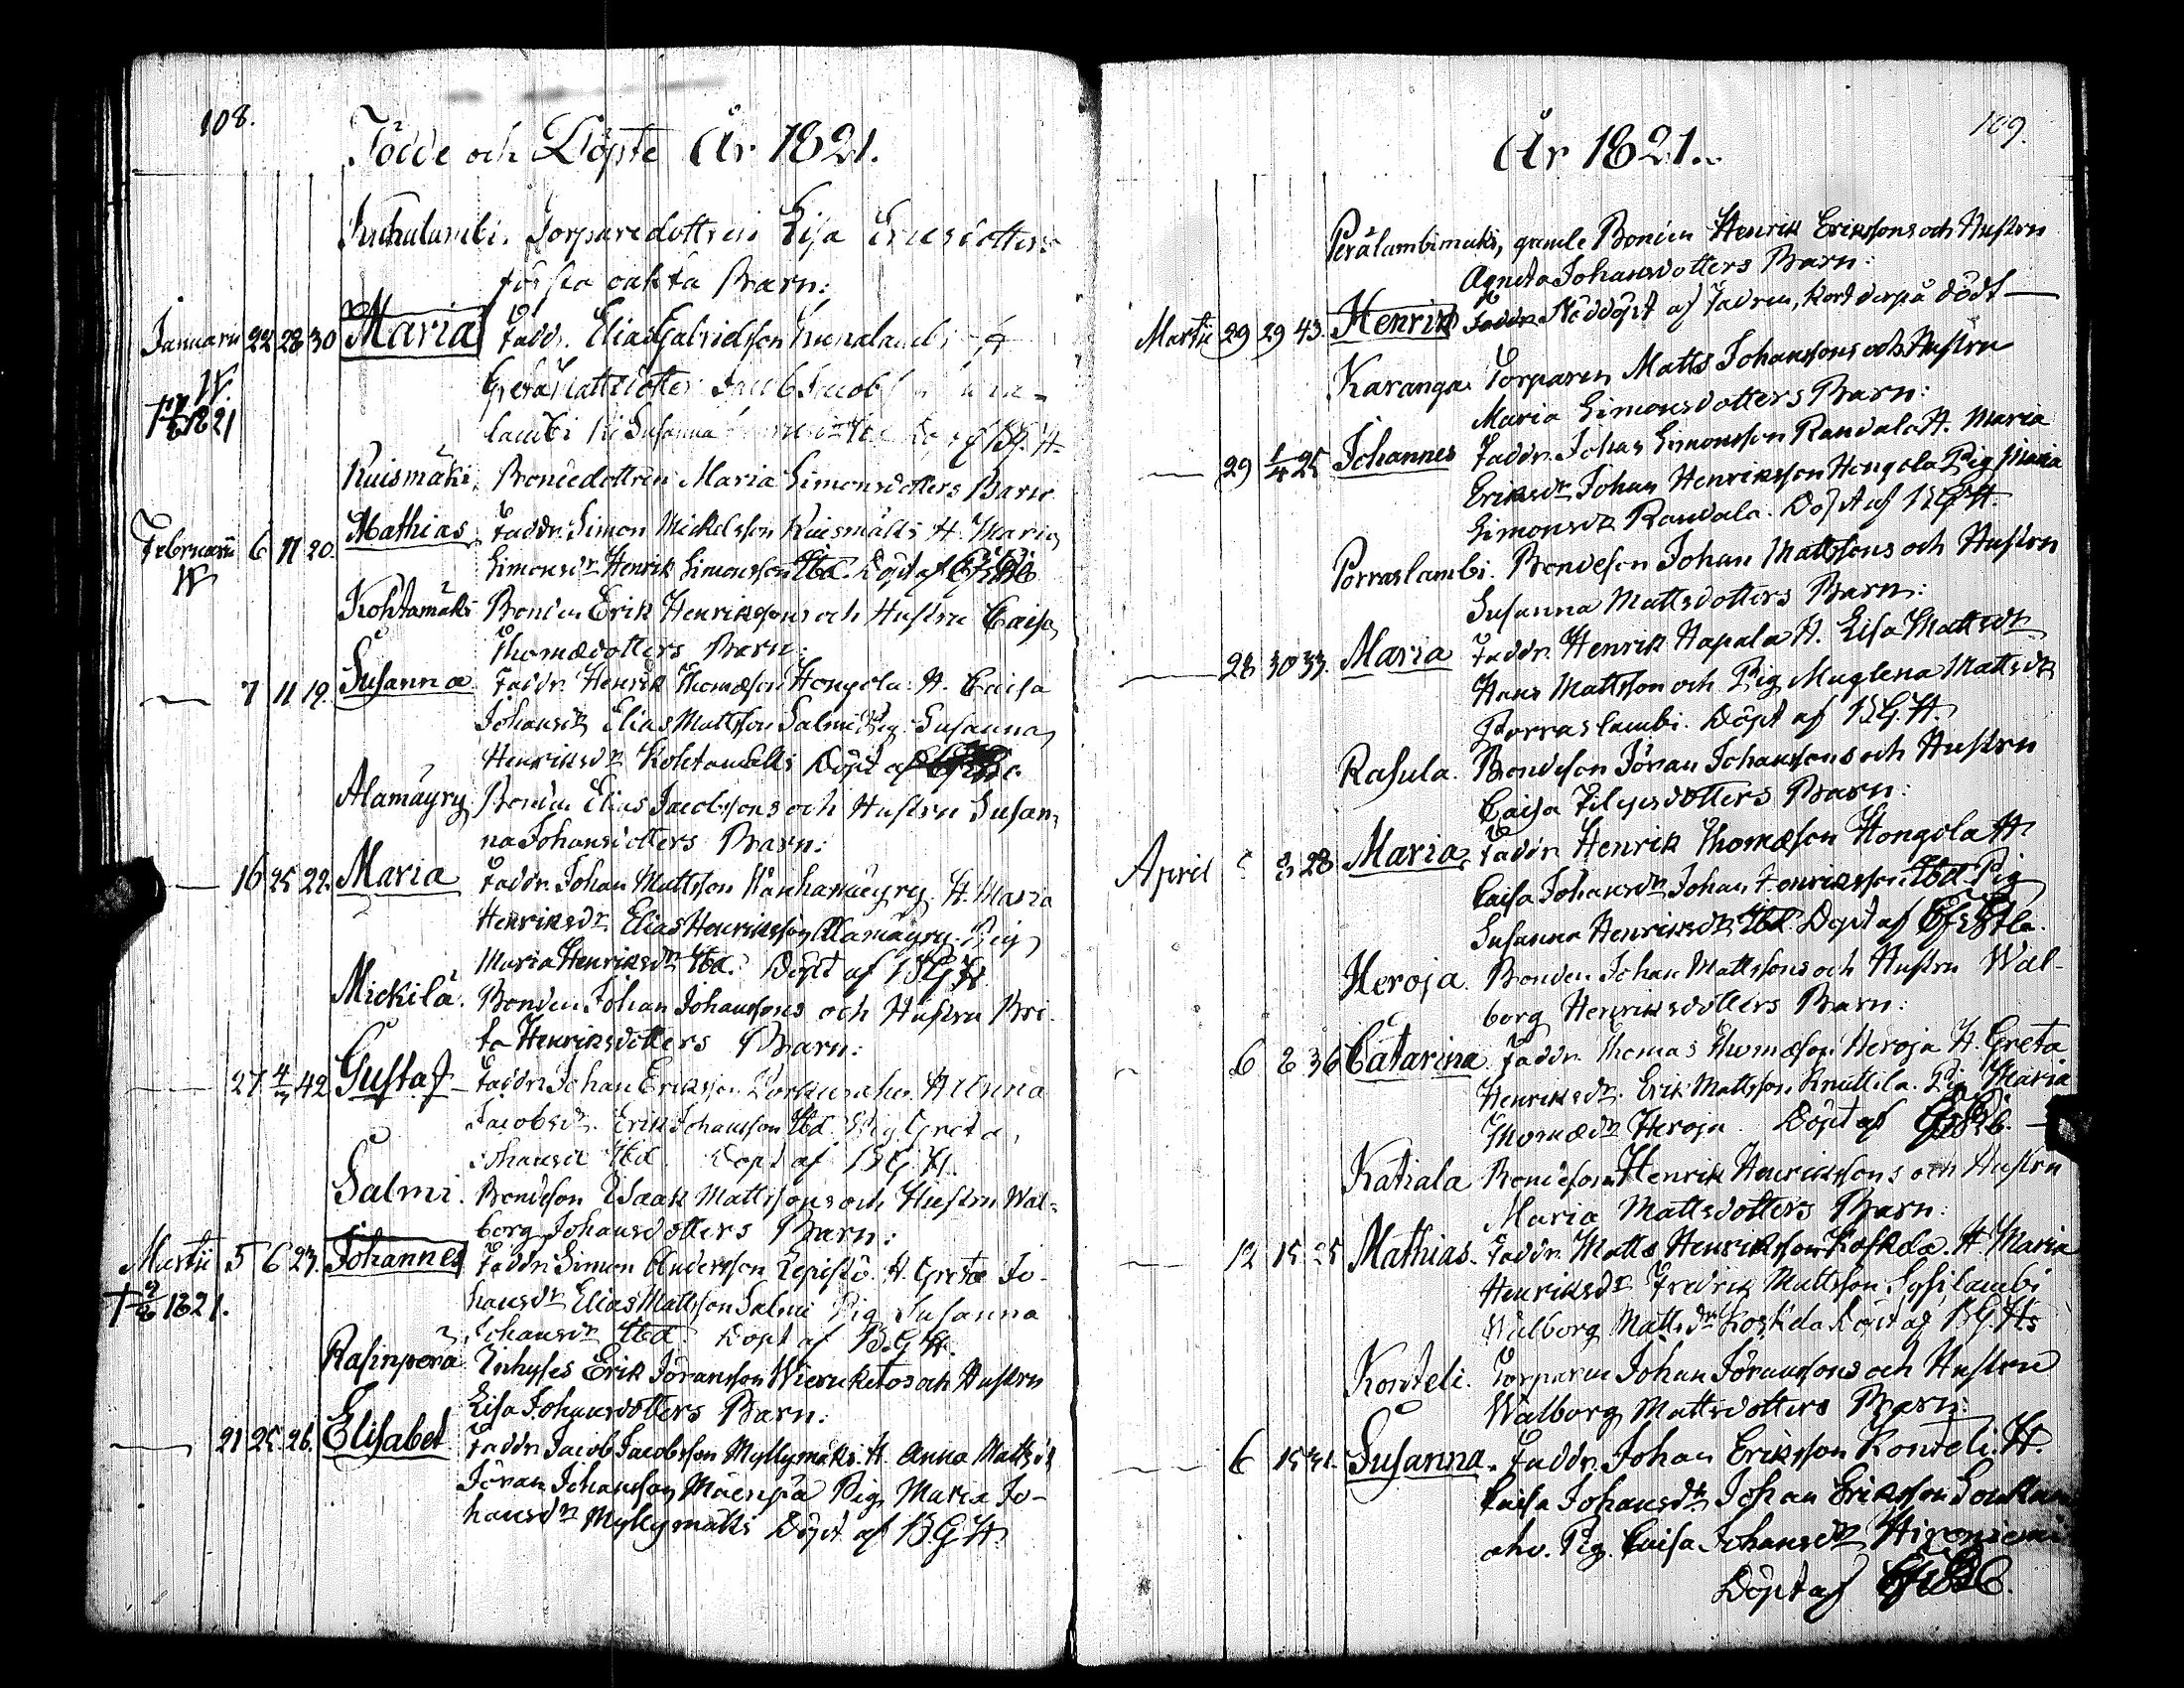 108.
Födde och Döpte År 1821.
Torparedottren Lisa Ericsdotters
första oäkta Barn:
Januarii 22 28 30 Maria Faddr. Elias Gabrielsson
Greta Mattsdotter Jacob Jacobs
W. † 1821
lambi Pi Susanna B.G.H.
Ruismäki, Bondedottren Maria Simonsdotters Barn.
Februarii 6 11 20. Mathias Faddr. Simon Mickelsson Ruismäki H. Maria
W
Simonsdr Henrik Simonsson Ibd. Döpt af
Kohtamäki Bonden Erik Henrikssons och Hustru Caisa
Thomædotters Barn:
— 7 11 19. Susanna Faddr. Henrik Thomæson Hongola H. Caisa
Johansdr Elias Mattsson Salmi Pig. Susanna
Henriksdr Kohtamäki Döpt af
Alamäyry Bonden Elias Jacobssons och Hustru Susan,
na Johansdotters Barn:
— 16 25 22. Maria Faddr. Johan Mattsson Wanhamäyry. H. Maria
Henriksdr Elias Henriksson Alamäyry. Pig
Maria Henriksdr Ibd. Döpt af B.G.H.
Mickilä. Bonden Johan Johanssons och Hustru Bri-
ta Henriksdotters Barn:
— 27 4/3 42 Gustaf Faddr. Johan Eriksson H Anna
Jacobsdr. Erik Johansson Ibd. Pig Greta
Johansdr Ibd. Döpt af B.G.H.
Salmi. Bondeson Isaak Mattssons och Hustru Wal-
borg Johansdotters Barn:
Martii 5 6 23. Johannes Faddr. Simon Andersson Lepistö. H. Greta Jo-
† 1821.
hansdr Elias Mattsson Salmi Pig Susanna
Johansdr Ibd. Döpt af B.G.H.
Rasinperä Inhyses Erik Jöransson Wieruketos och Hustru
Lisa Johansdotters Barn:
— 21 25. 26. Elisabet Faddr. Jacob Jacobsson Myllymäki. H. Anna Mattsdr
Jöran Johansson Mäenpä Pig Maria Jo-
hansdr Myllymäki Döpt af B.G.H.
109.
År 1821.
Perälambimäki, gamle Bonden Henrik Erikssons och Hustru
Agneta Johansdotters Barn:
Martii 29 29 43. Henrik Nöddöpt af Fadren, kort derpå dödt —
Karanga Torparen Matts Johanssons och Hustru
Maria Simonsdotters Barn:
— 29 1/4 25 Johannes Faddr. Johan Simonsson Randala H. Maria
Eriksdr Johan Henriksson Hongola Pig Maria
Simonsdr Randala. Döpt af B.G.H.
Porraslambi. Bondeson Johan Mattssons och Hustru
Susanna Mattsdotters Barn:
— 28 30 33. Maria Faddr. Henrik Hapala H. Lisa Mattsdr
Hans Mattsson och Pig Maglena Mattsdr
Porraslambi. Döpt af B.G.H.
Rasula. Bondeson Jöran Johanssons och Hustru
Caisa Filipsdotters Barn:
April 8 28 Maria Faddr. Henrik Thomæson Hongola H
Caisa Johansdr Johan Henriksson Ibd. Pig
Susanna Henriksdr Ibd Döpt af
Heroja. Bonden Johan Mattssons och Hustru Wal-
borg Henriksdotters Barn:
6 8 36 Catarina Faddr. Thomas Thomæson Heroja H. Greta
Henriksdr. Erik Mattsson Knuttila. Pig Maria
Thomædr Heroja. Döpt af
Katiala Bondeson Henrik Henrikssons och Hustru
Maria Mattsdotters Barn:
— 12 15 25 Mathias. Faddr. Matts Henriksson Koskela. H. Maria
Henriksdr Fredrik Mattsson Sysilambi
Walborg Mattsdr Koskela Döpt af B.G.H.
Konteli. Torparen Johan Jöranssons och Hustru
Walborg Mattsdotters Barn:
— 6 15 31. Susanna. Faddr. Johan Eriksson Konteli. H.
Caisa Johansdr Johan Eriksson
aho. Pig. Caisa Johansdr
Döpt af